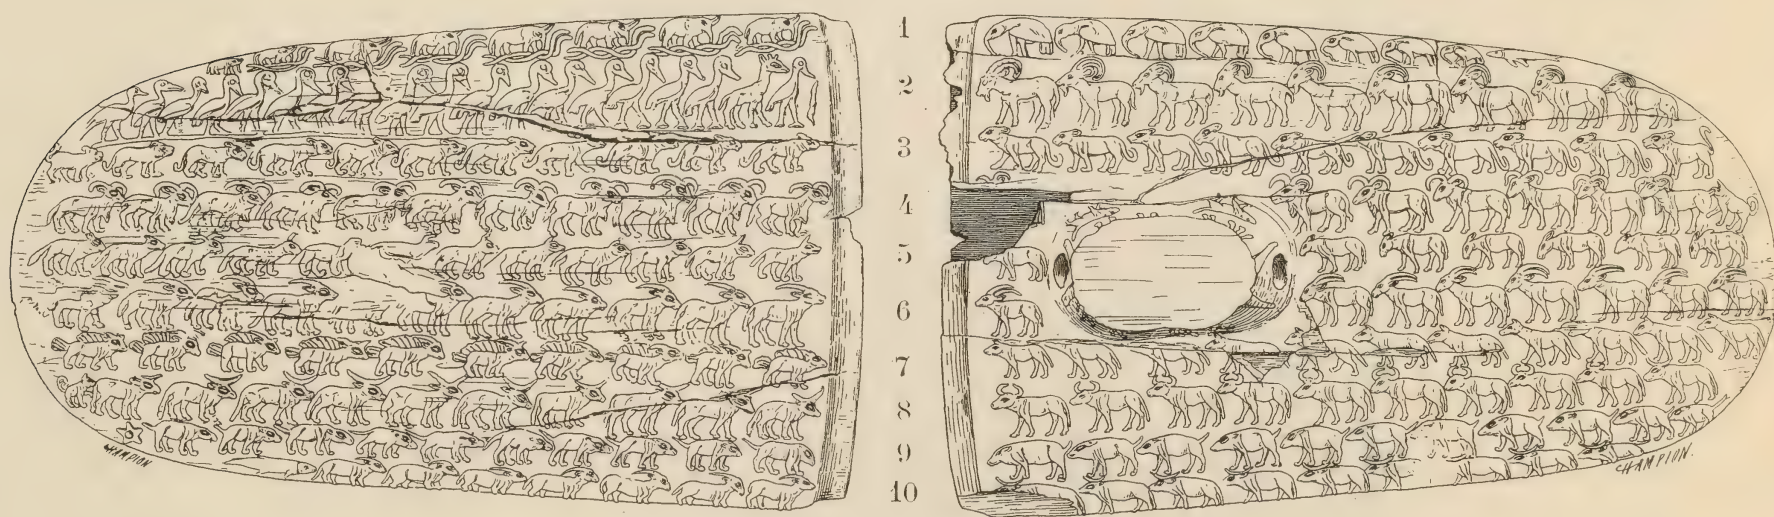 1
2
3
4
5
6
7
8
9
10
CHAMPION
CHAMPION.